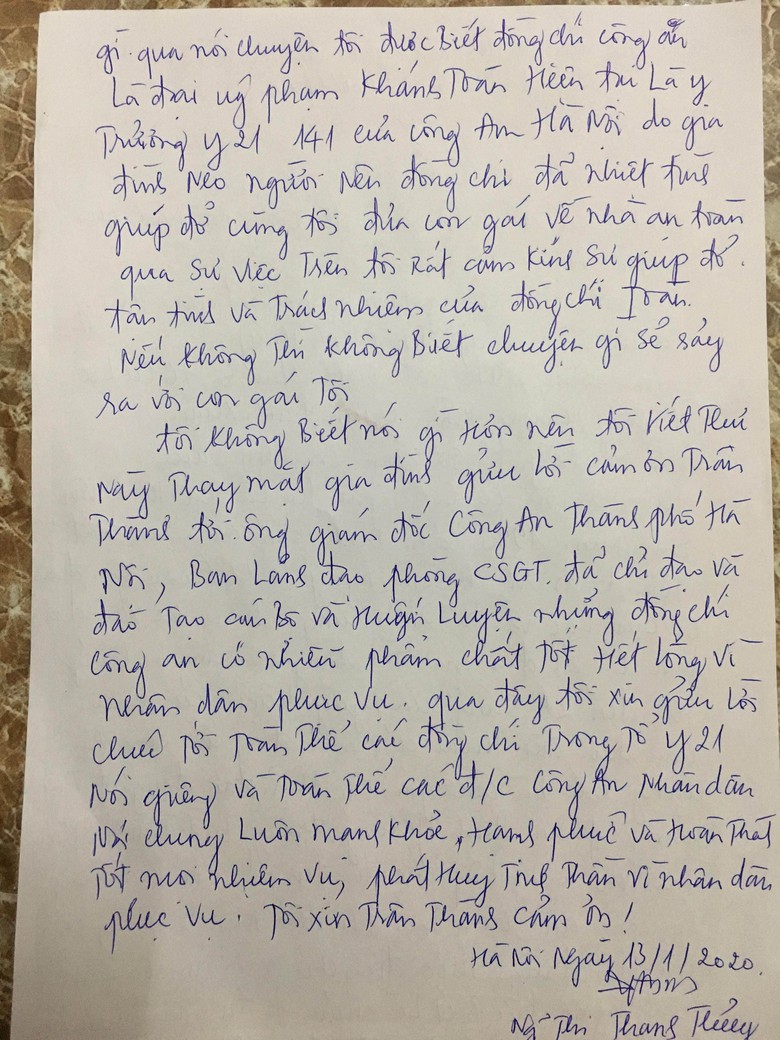 gì. qua nói chuyện tôi được Biết đồng chí công an
Là đại uý phạm Khánh Toàn Hiện tại Là y
Trưởng y 21 141 của công An Hà Nội do gia
đình Neo người Nên đồng chí đã nhiệt tình
giúp đỡ cùng tôi đưa con gái về nhà an toàn
qua Sự việc Trên tôi Rất cảm kích Sự giúp đỡ.
tận tình và Trách nhiệm của đồng chí Toàn.
Nếu không Thì không Biết chuyện gì sẽ sảy
ra với con gái Tôi
tôi không Biết nói gì Hơn nên tôi viết Thư
Này Thay mặt gia đình gửi Lời cảm ơn Trân
Thành tới. ông giám đốc Công An Thành phố Hà
Nội, Ban Lãnh đạo phòng CSGT. đã chỉ đạo và
đào Tạo cán Bộ và Huấn Luyện những đồng chí
công an có nhiều phẩm chất Tốt Hết Lòng vì
nhân dân phục vụ. qua đây tôi xin gửi Lời
chúc Tới Toàn Thể các đồng chí Trong Tổ y 21
Nói giêng và Toàn Thể các đ/c Công An Nhân dân
Nói chung Luôn mạnh Khỏe, Hạnh phúc và Hoàn Thành
Tốt mọi nhiệm vụ, phát Huy Tinh Thần vì nhân dân
phục vụ. Tôi xin Trân Thành cảm ơn!
Hà Nội Ngày 13/1/2020.
Ngô Thị Thanh Thủy